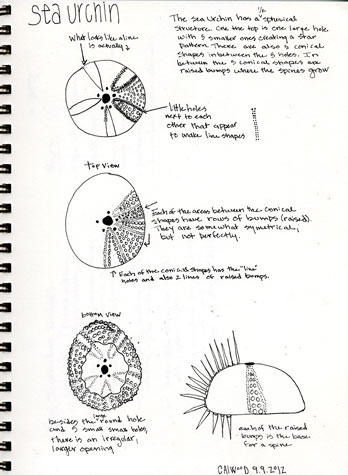 sea urchin
The sea urchin has a spherical
structure. On the top is one large hole
with 5 smaller ones creating a star
pattern. There are also 5 conical
shapes inbetween the 5 holes. In
between the 5 conical shapes are
raised bumps where the spines grow
What looks like a line
is actually ↓
little holes
next to each
other that appear
to make line shapes
top view
Each of the areas between the conical
shapes have rows of bumps (raised).
They are somewhat symetrical,
but not perfectly.
↑ Each of the conical shapes has the "line"
holes and also 2 lines of raised bumps.
bottom view
besides the large round hole
and 5 small holes,
there is an irregular,
larger opening
each of the raised
bumps is the base
for a spine
CAlwood 9.9.2012